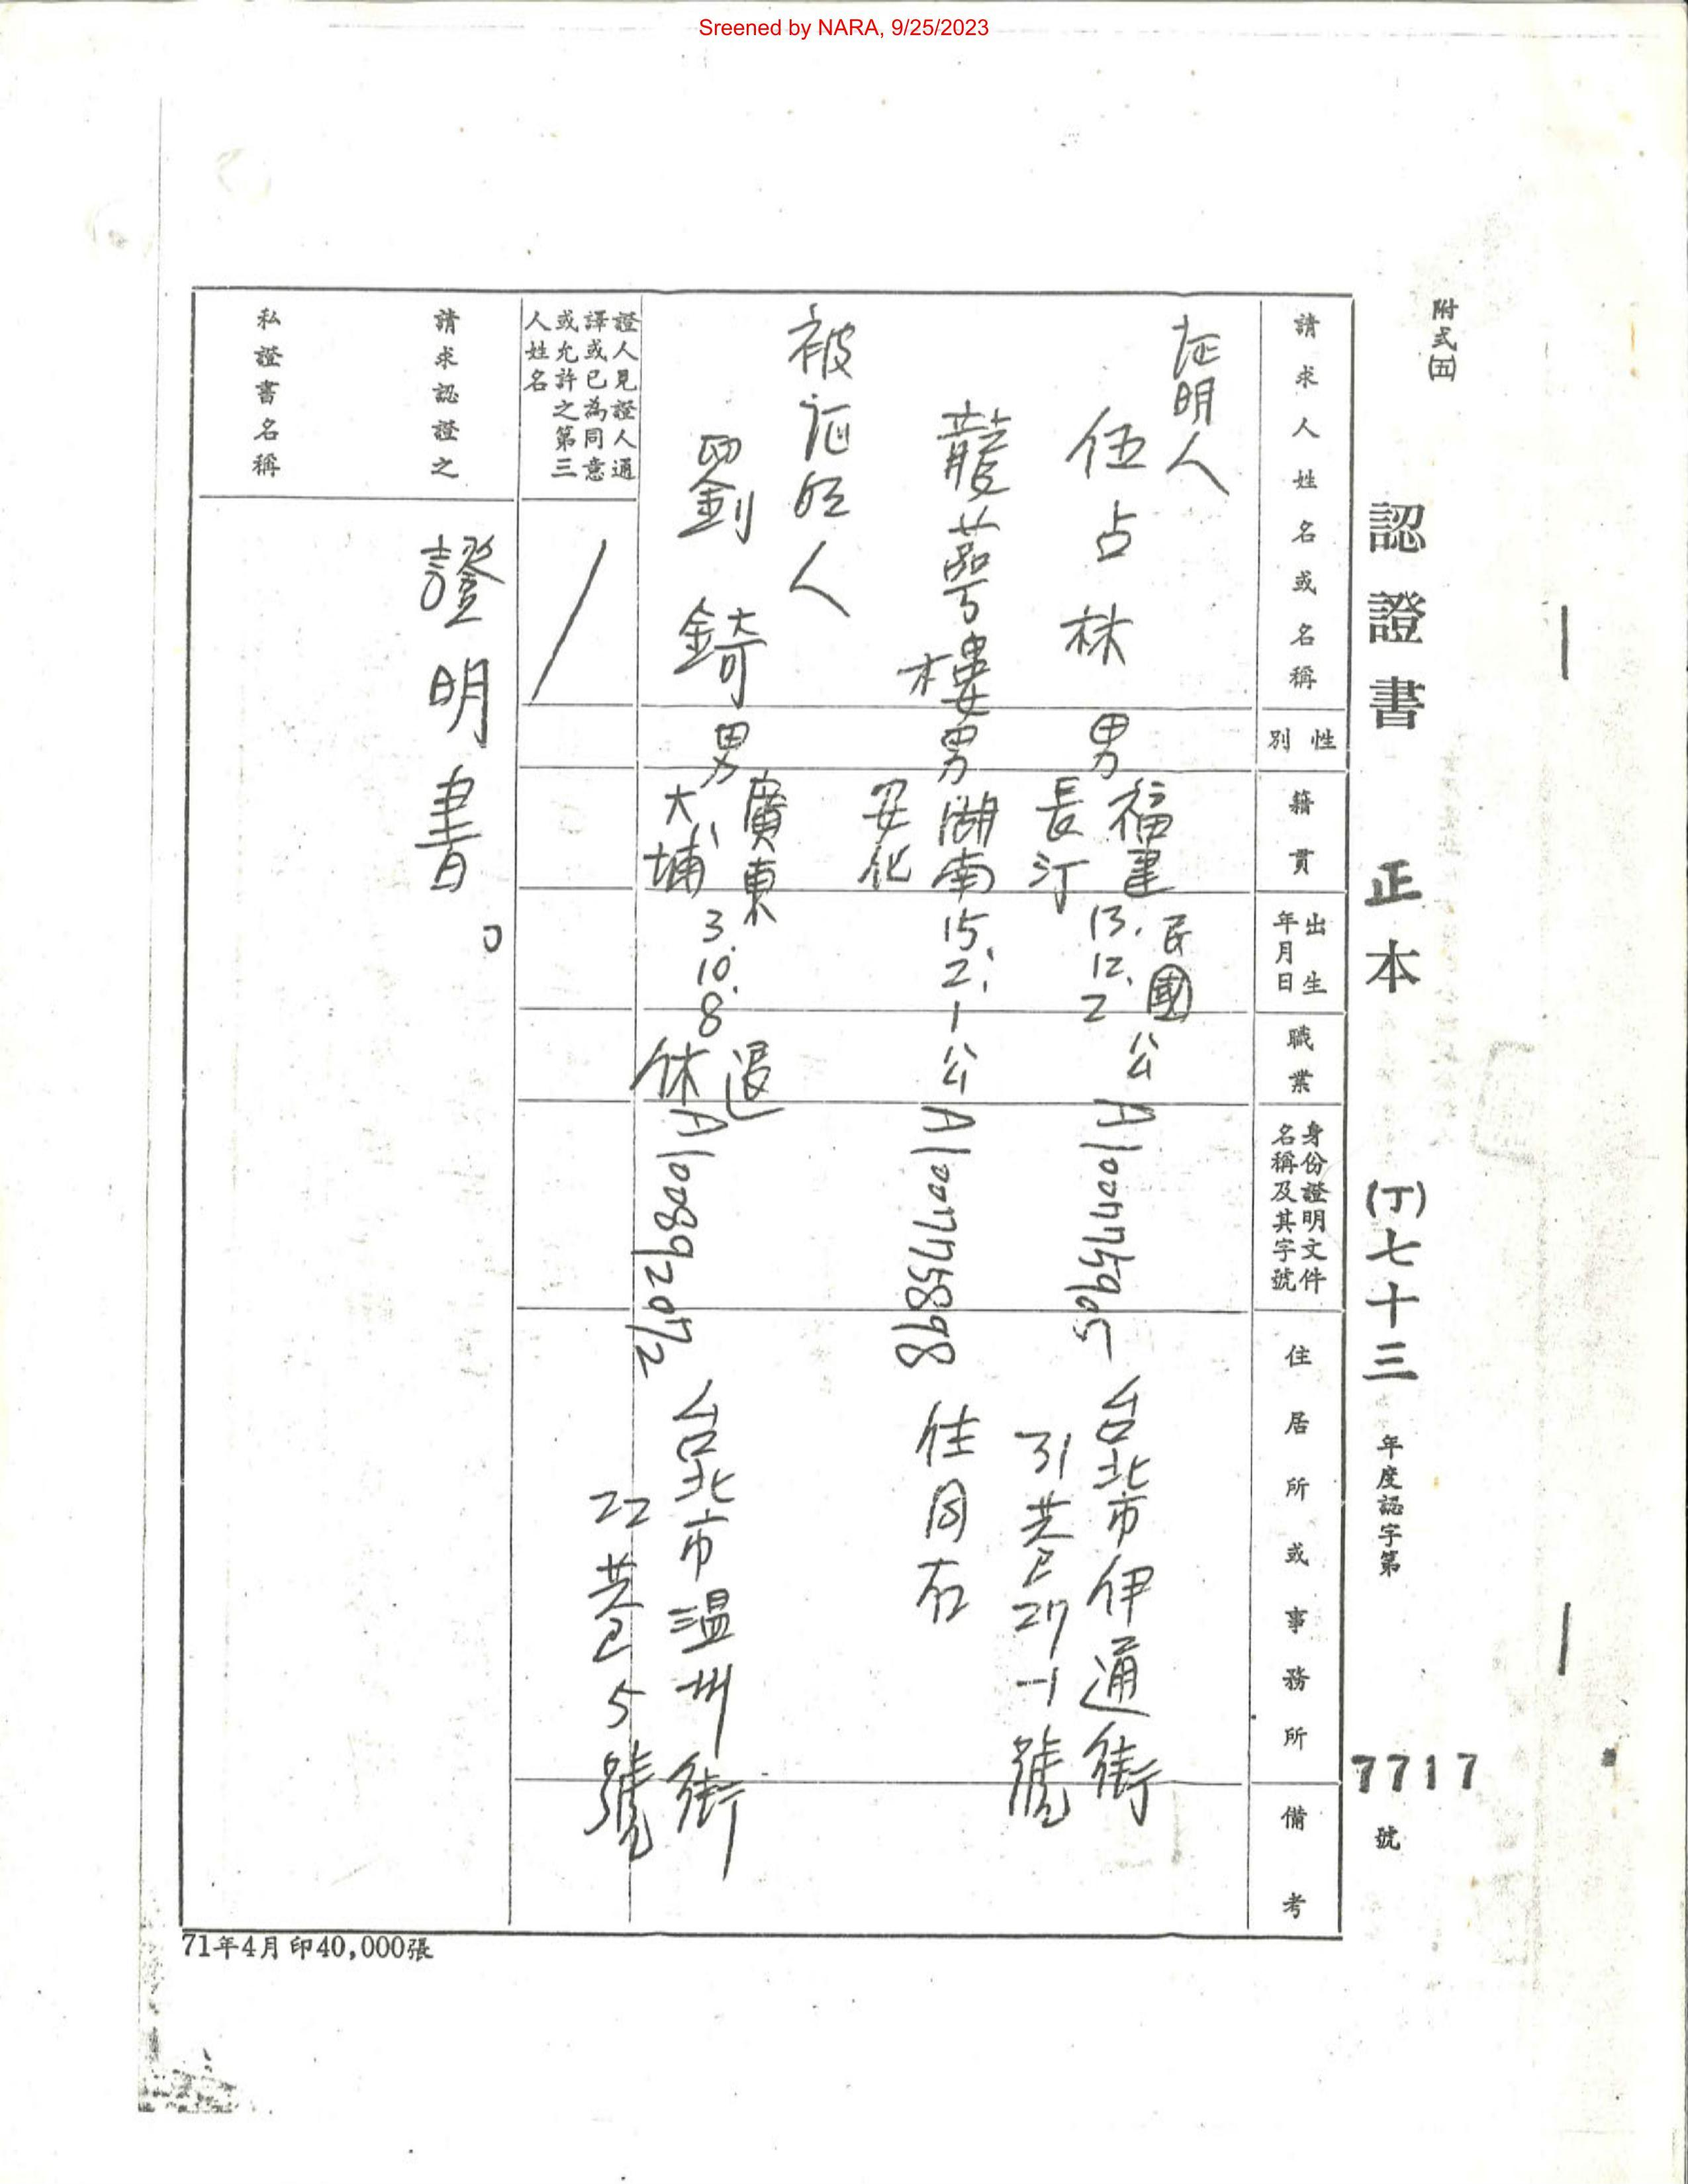 Sreened by NARA, 9/25/2023
附式(五)
認證書 正本 (丁)七十三年度認字第7717號
請求人姓名或名稱
性別
籍貫
出生年月日
職業
身份證明文件名稱及其字號
住居所或事務所
備考
证明人
伍占林 男 福建長汀 民國13.12.2 公 A100775905 台北市伊通街31巷27-1號
龍萼樓 男 湖南安化 15.2.1 公 A100775898 住同右
被证明人
劉錡 男 廣東大埔 3.10.8 退休 A100892072 台北市温州街22巷5號
證人見證人通譯或已為同意或允許之第三人姓名
請求認證之私證書名稱
證明書。
71年4月印40,000張